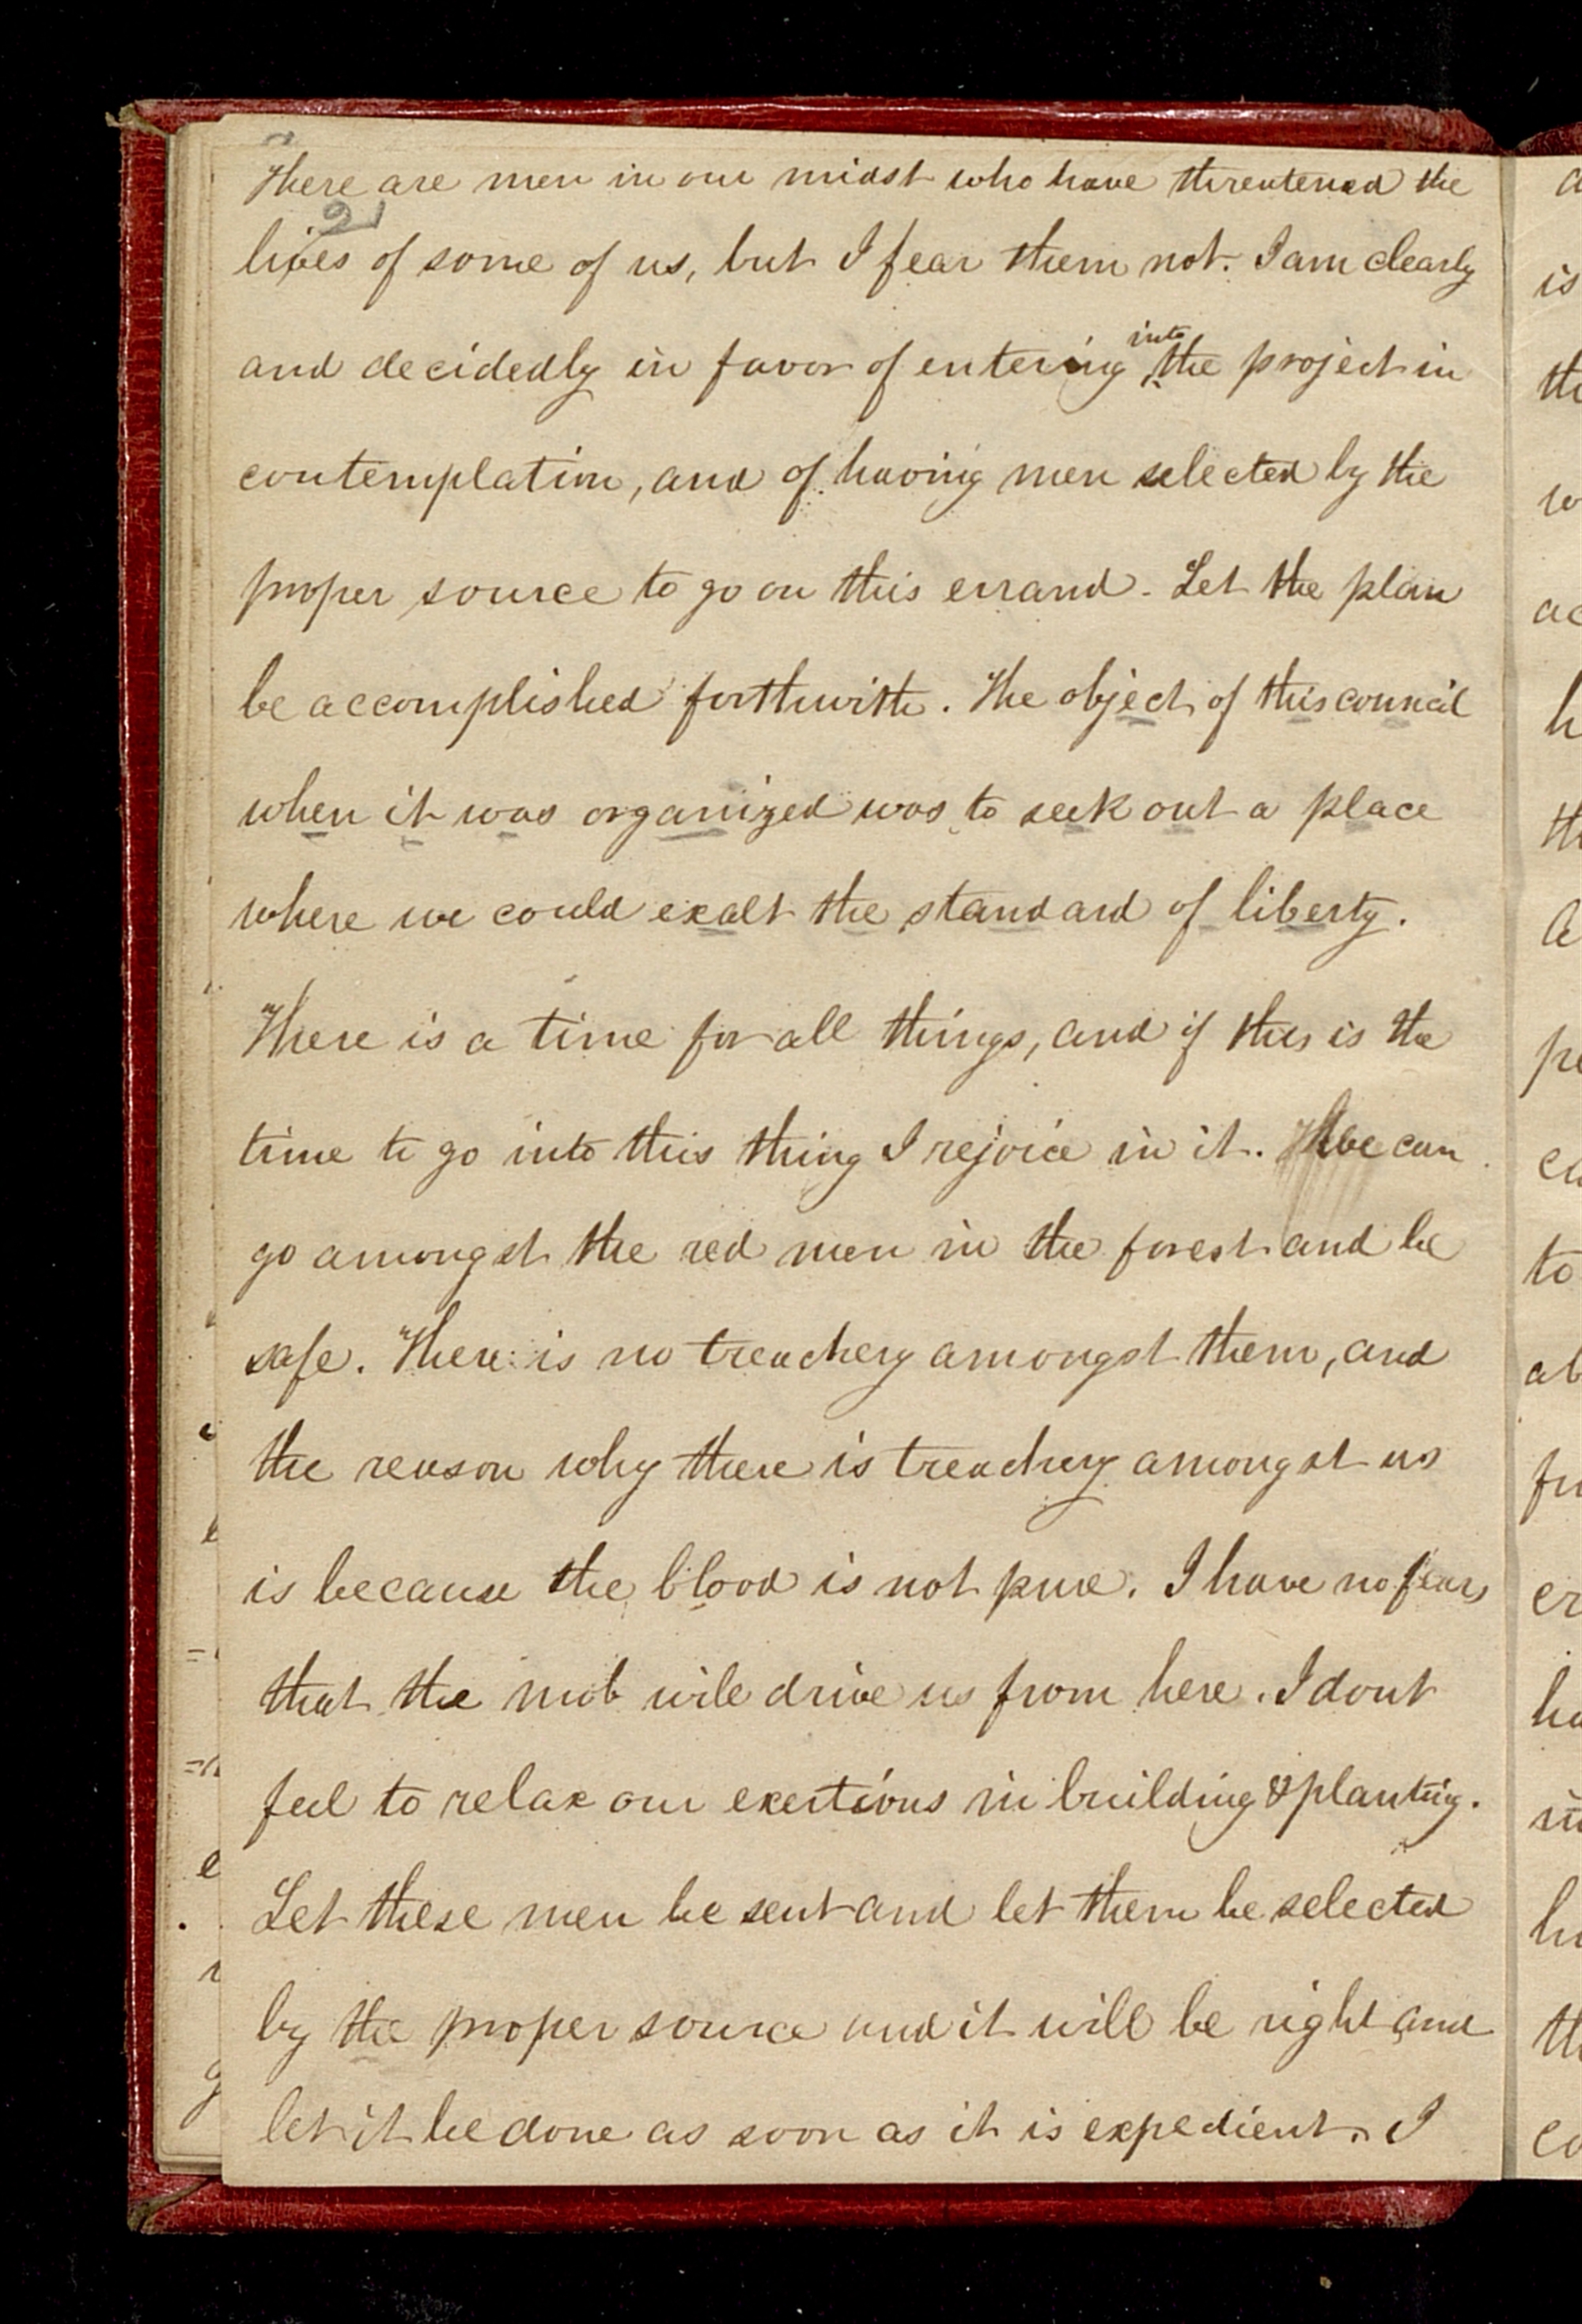 There are men in our midst who have threatened the
21
lives of some of us, but I fear them not. I am clearly
into
and decidedly in favor of entering the project in
contemplation, and of having men selected by the
proper source to go on this errand. Let the plan
be accomplished forthwith. The object of this council
when it was organized was to seek out a place
where we could exalt the standard of liberty.
There is a time for all things, and if this is the
time to go into this thing I rejoice in it. We can
go amongst the red men in the forest and be
safe. There is no treachery amongst them, and
the reason why there is treachery amongst us
is because the blood is not pure. I have no fears
that the mob will drive us from here. I dont
feel to relax our exertions in building & planting.
Let these men be sent and let them be selected
by the proper source and it will be right and
let it be done as soon as it is expedient. I